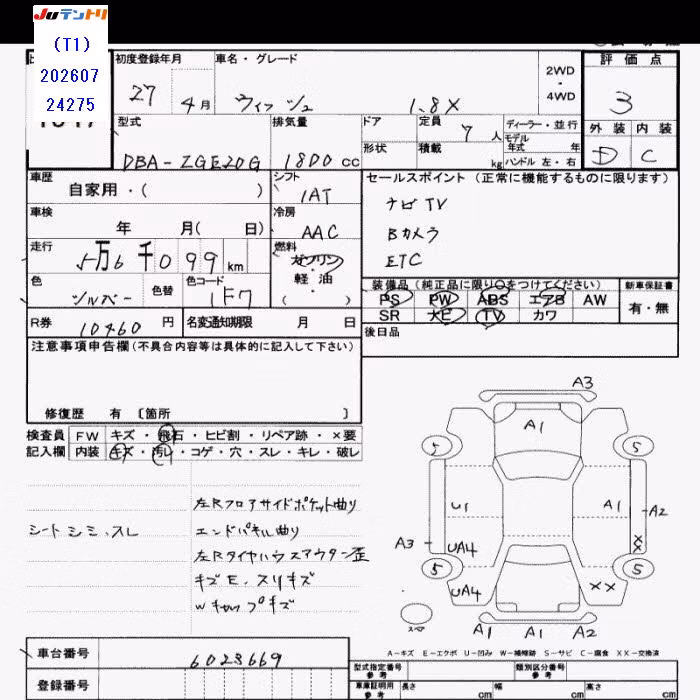 Juテントリ
(T1)
202607
24275
初度登録年月 車名・グレード 評価点
27 4月 ウィッシュ 1.8X 2WD・4WD 3
外装 内装
D C
型式 排気量 ドア 定員 7人 ディーラー・並行
DBA-ZGE20G 1800cc 形状 積載 kg モデル年式 年
ハンドル 左・右
車歴 シフト セールスポイント(正常に機能するものに限ります)
自家用・( ) IAT
ナビ TV
車検 冷房
年 月( 日) AAC
Bカメラ
走行 燃料
5万6千099km ガソリン・軽・油
ETC
色 色替 色コード
シルバー 1F7
装備品(純正品に限り○をつけてください) 新車保証書
PS PW ABS エアB AW 有・無
SR ナビ TV カワ
R券 10460円 名変通知期限 月 日
後日品
注意事項申告欄(不具合内容等は具体的に記入して下さい)
修復歴 有〔箇所 〕
検査員 FW キズ・飛石・ヒビ割・リペア跡・×要
記入欄 内装 キズ・汚レ・コゲ・穴・スレ・キレ・破レ
左Rフロアサイドポケット曲り
シートシミ、スレ エンドパネル曲り
左Rタイヤハウスアウター歪
キズE、スリキズ
Wキャップキズ
A3
A1
5 5
U1 A1 A2
A3 UA4 XX
5 5
UA4 XX
スペア A1 A1 A2
A-キズ E-エクボ U-凹み W-補修跡 S-サビ C-腐食 XX-交換済
車台番号 6023669
登録番号
型式指定番号 参考 類別区分番号 参考
車庫証明用 参考 長さ cm 幅 cm 高さ cm